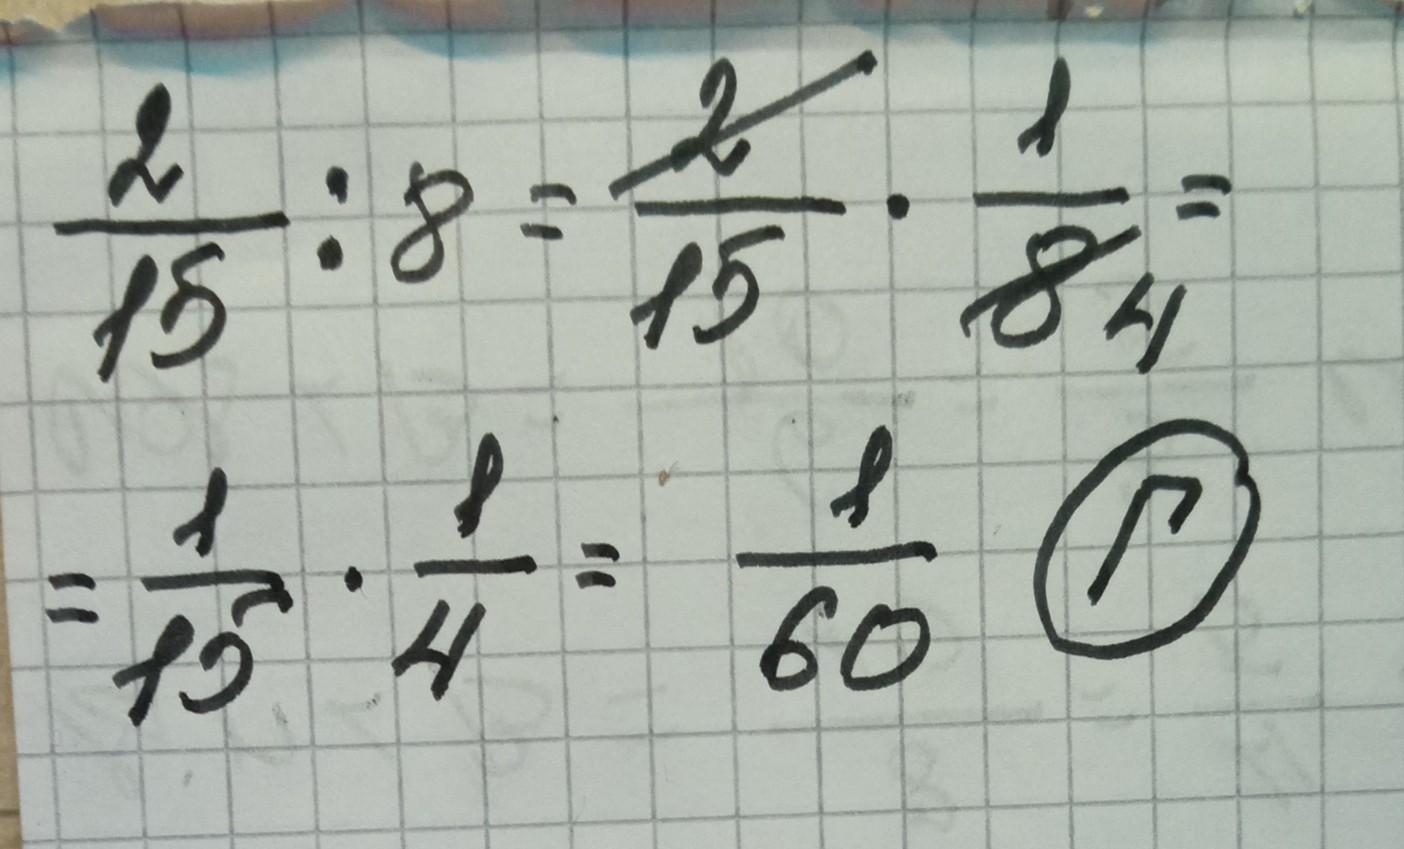 2/15 : 8 = 2/15 · 1/8 4 =
= 1/15 · 1/4 = 1/60 Г